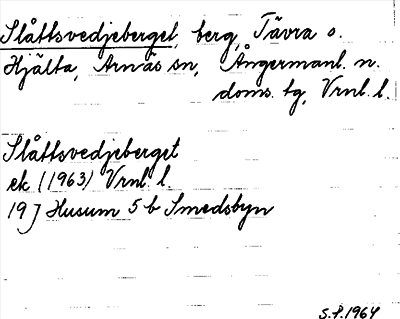 Slåttsvedjeberget, berg, Tävra o.
Hjälta, Arnäs sn, Ångermanl. n.
doms. tg, Vrnl. l.
Slåttsvedjeberget
ek (1963) Vrnl. l.
19J Husum 5 b Smedsbyn
S.F. 1964